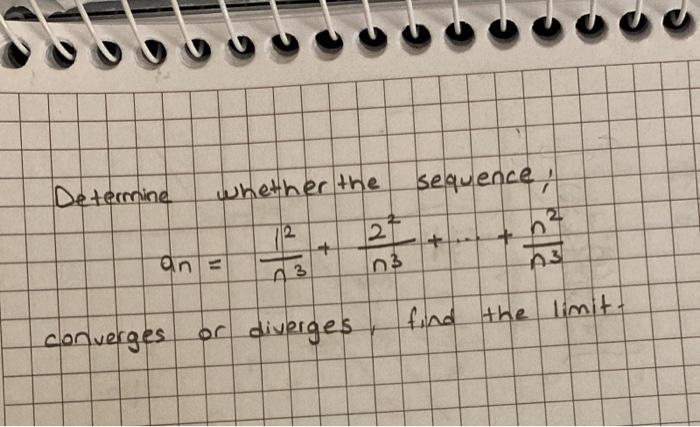 Determine whether the sequence;
an = 1²/n³ + 2²/n³ + ... + n²/n³
converges or diverges, find the limit.